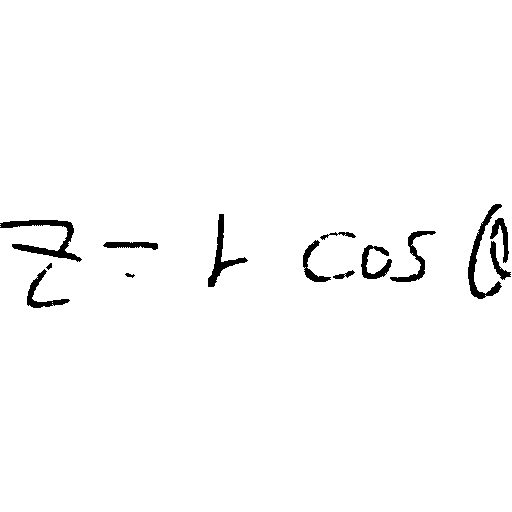 z = r cos θ